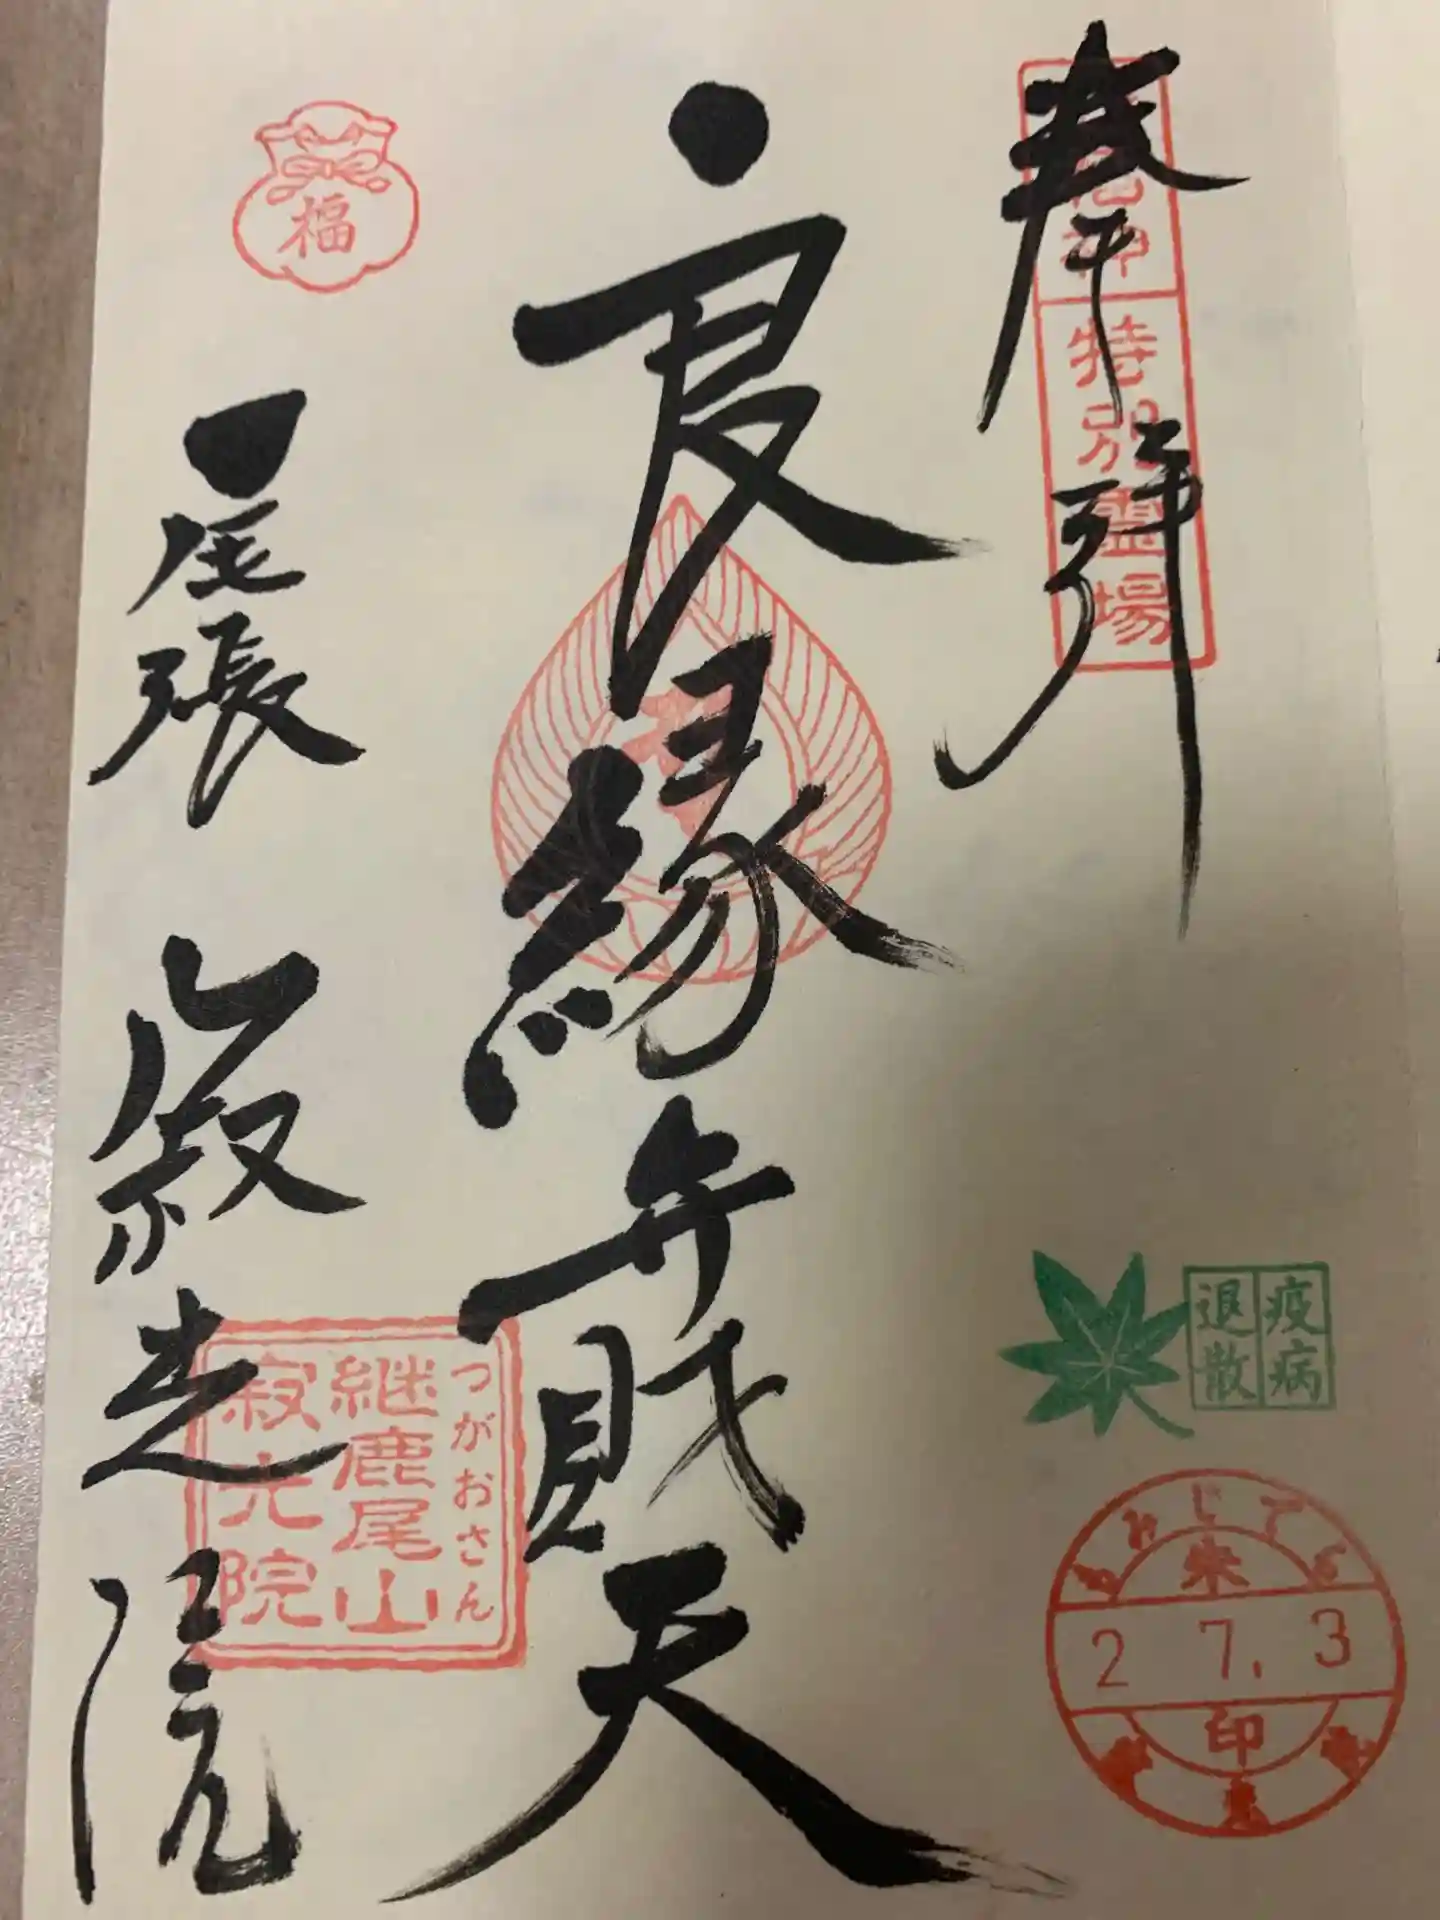 奉拝
神特別霊場
良縁弁財天
福
尾張
寂光院
つがおさん
継鹿尾山
寂光院
疫病
退散
もみじでら
来
2 7. 3
印